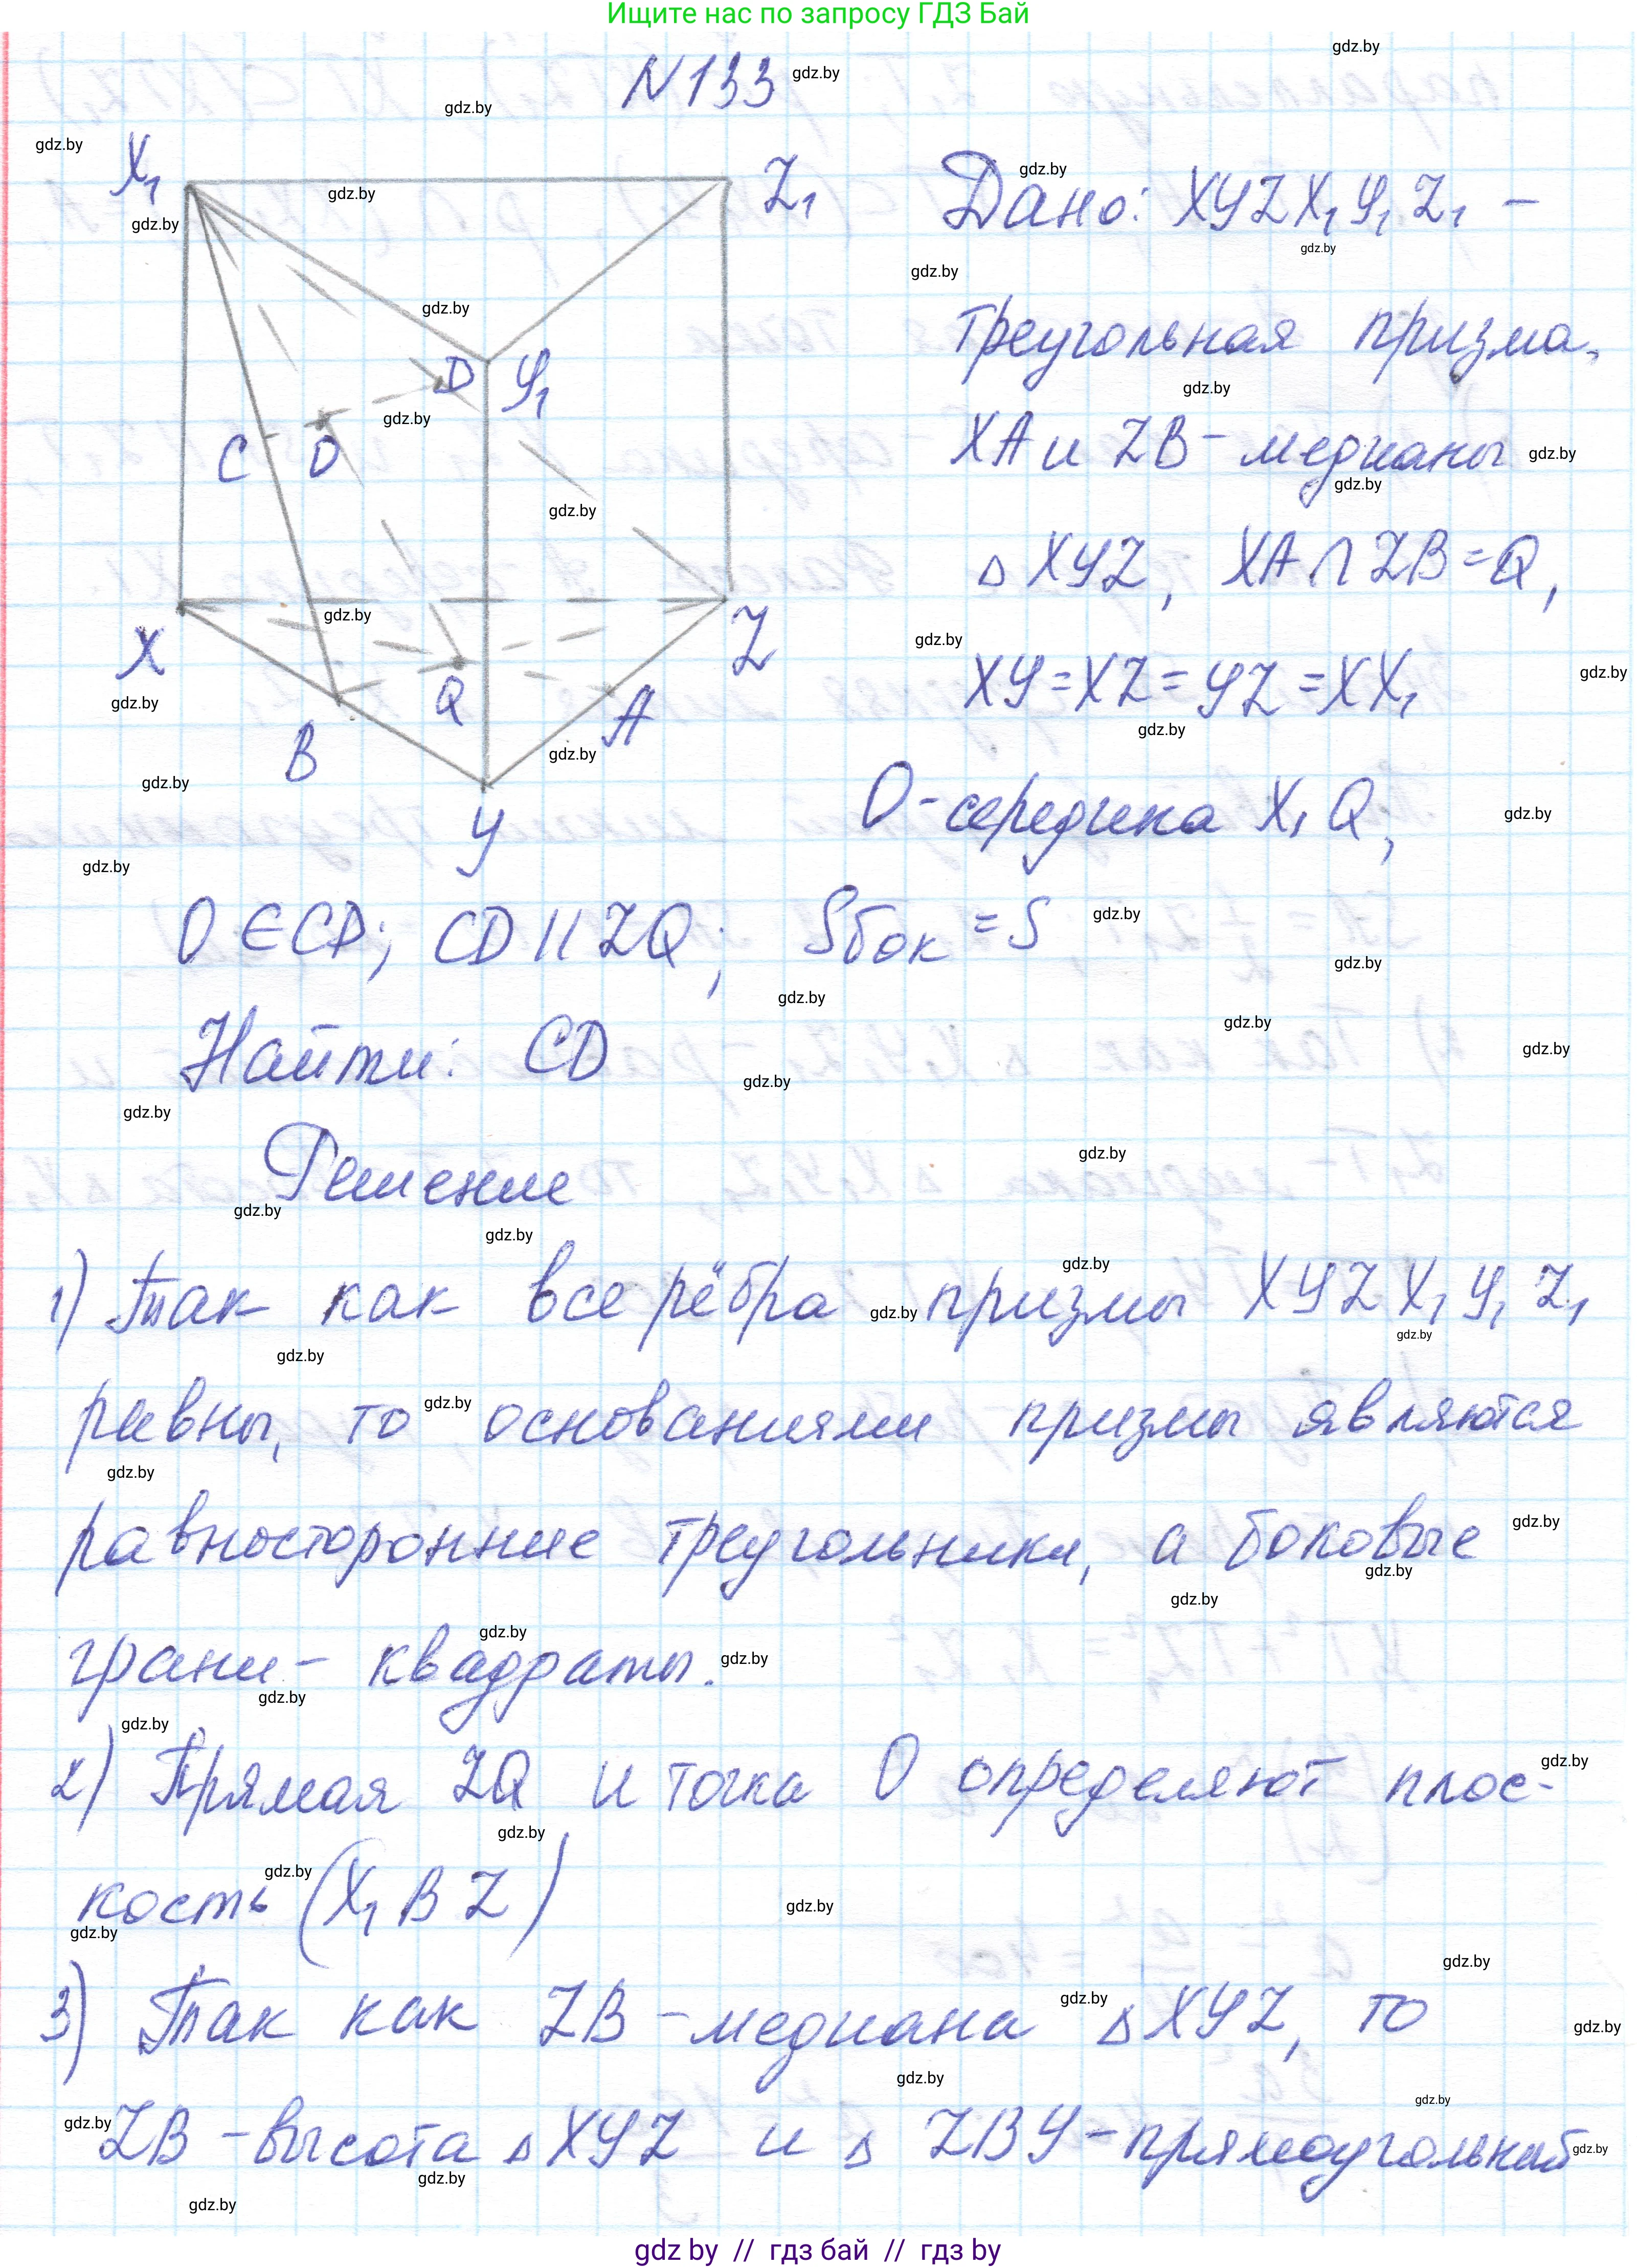 Ищите нас по запросу ГДЗ Бай
N133
Дано: XYZX₁Y₁Z₁ –
треугольная призма,
XA и ZB – медианы
△ XYZ, XA ∩ ZB = Q,
XY = XZ = YZ = XX₁
O – середина X₁Q,
O ∈ CD; CD ∥ ZQ; Sбок = S
Найти: CD
Решение
1) Так как все рёбра призмы XYZX₁Y₁Z₁
равны, то основаниями призмы являются
равносторонние треугольники, а боковые
грани – квадраты.
2) Прямая ZQ и точка O определяют плос-
кость (X₁BZ)
3) Так как ZB – медиана △XYZ, то
ZB – высота △XYZ и △ ZBY – прямоугольный
X₁
Z₁
D
Y₁
C
O
X
Z
Q
A
B
Y
gdz.by
gdz by // гдз бай // gdz by